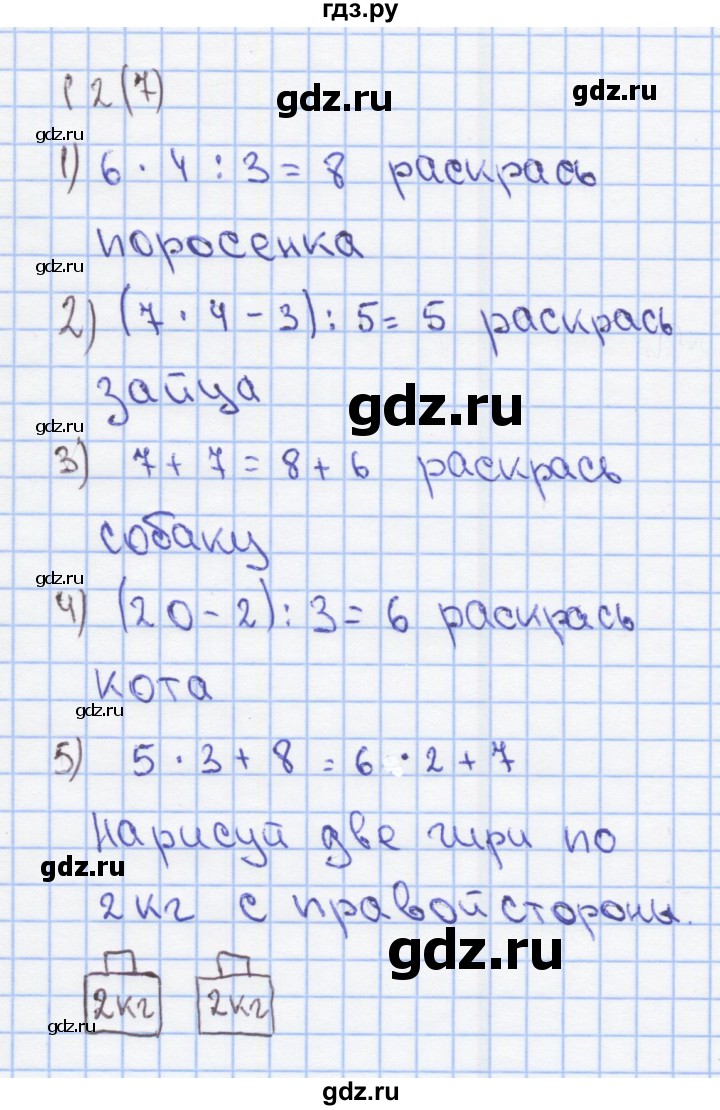 гдз.ру
Р 2 (7)
gdz.ru
gdz.ru
gdz.ru
1) 6 · 4 : 3 = 8 раскрась
поросенка
gdz.ru
2) (7 · 4 - 3) : 5 = 5 раскрась
зайца
gdz.ru
gdz.ru
3) 7 + 7 = 8 + 6 раскрась
собаку
gdz.ru
4) (20 - 2) : 3 = 6 раскрась
кота
gdz.ru
5) 5 · 3 + 8 = 6 · 2 + 7
Нарисуй две гири по
gdz.ru
2 кг с правой стороны.
gdz.ru
2 кг 2 кг
gdz.ru
gdz.ru